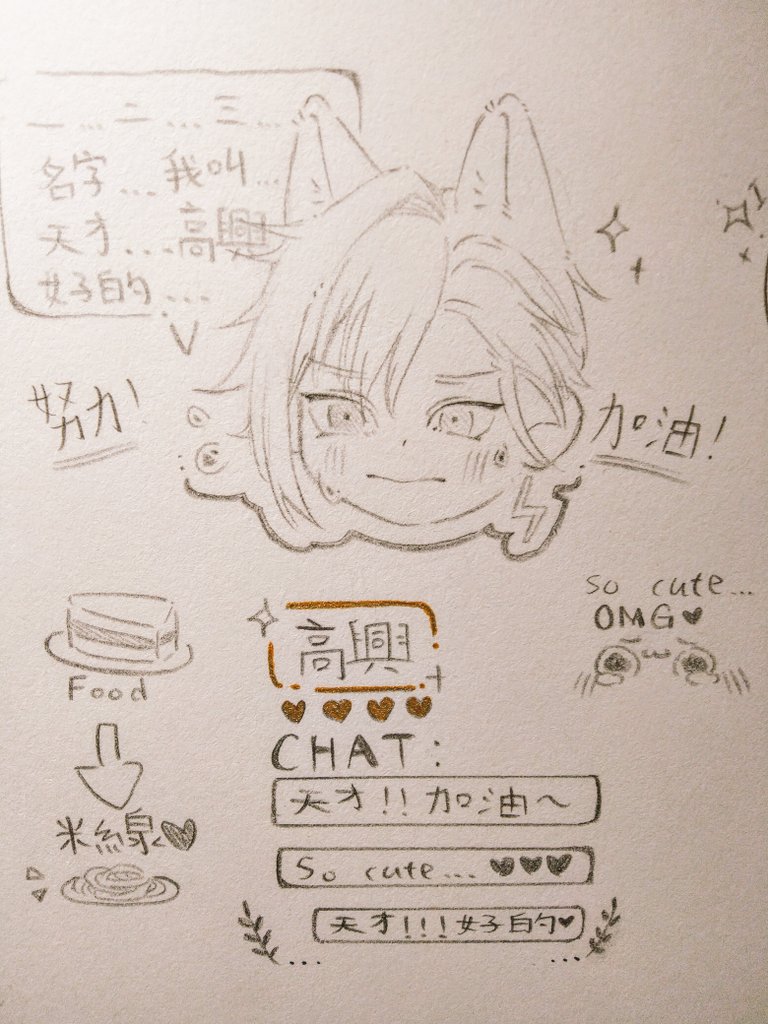 一...二...三...
名字...我叫...
天才...高興
好的...
努力!
加油!
so cute...
OMG♥
Food
高興
米線♥
CHAT:
天才!!加油~
So cute...♥♥♥
天才!!!好的♥